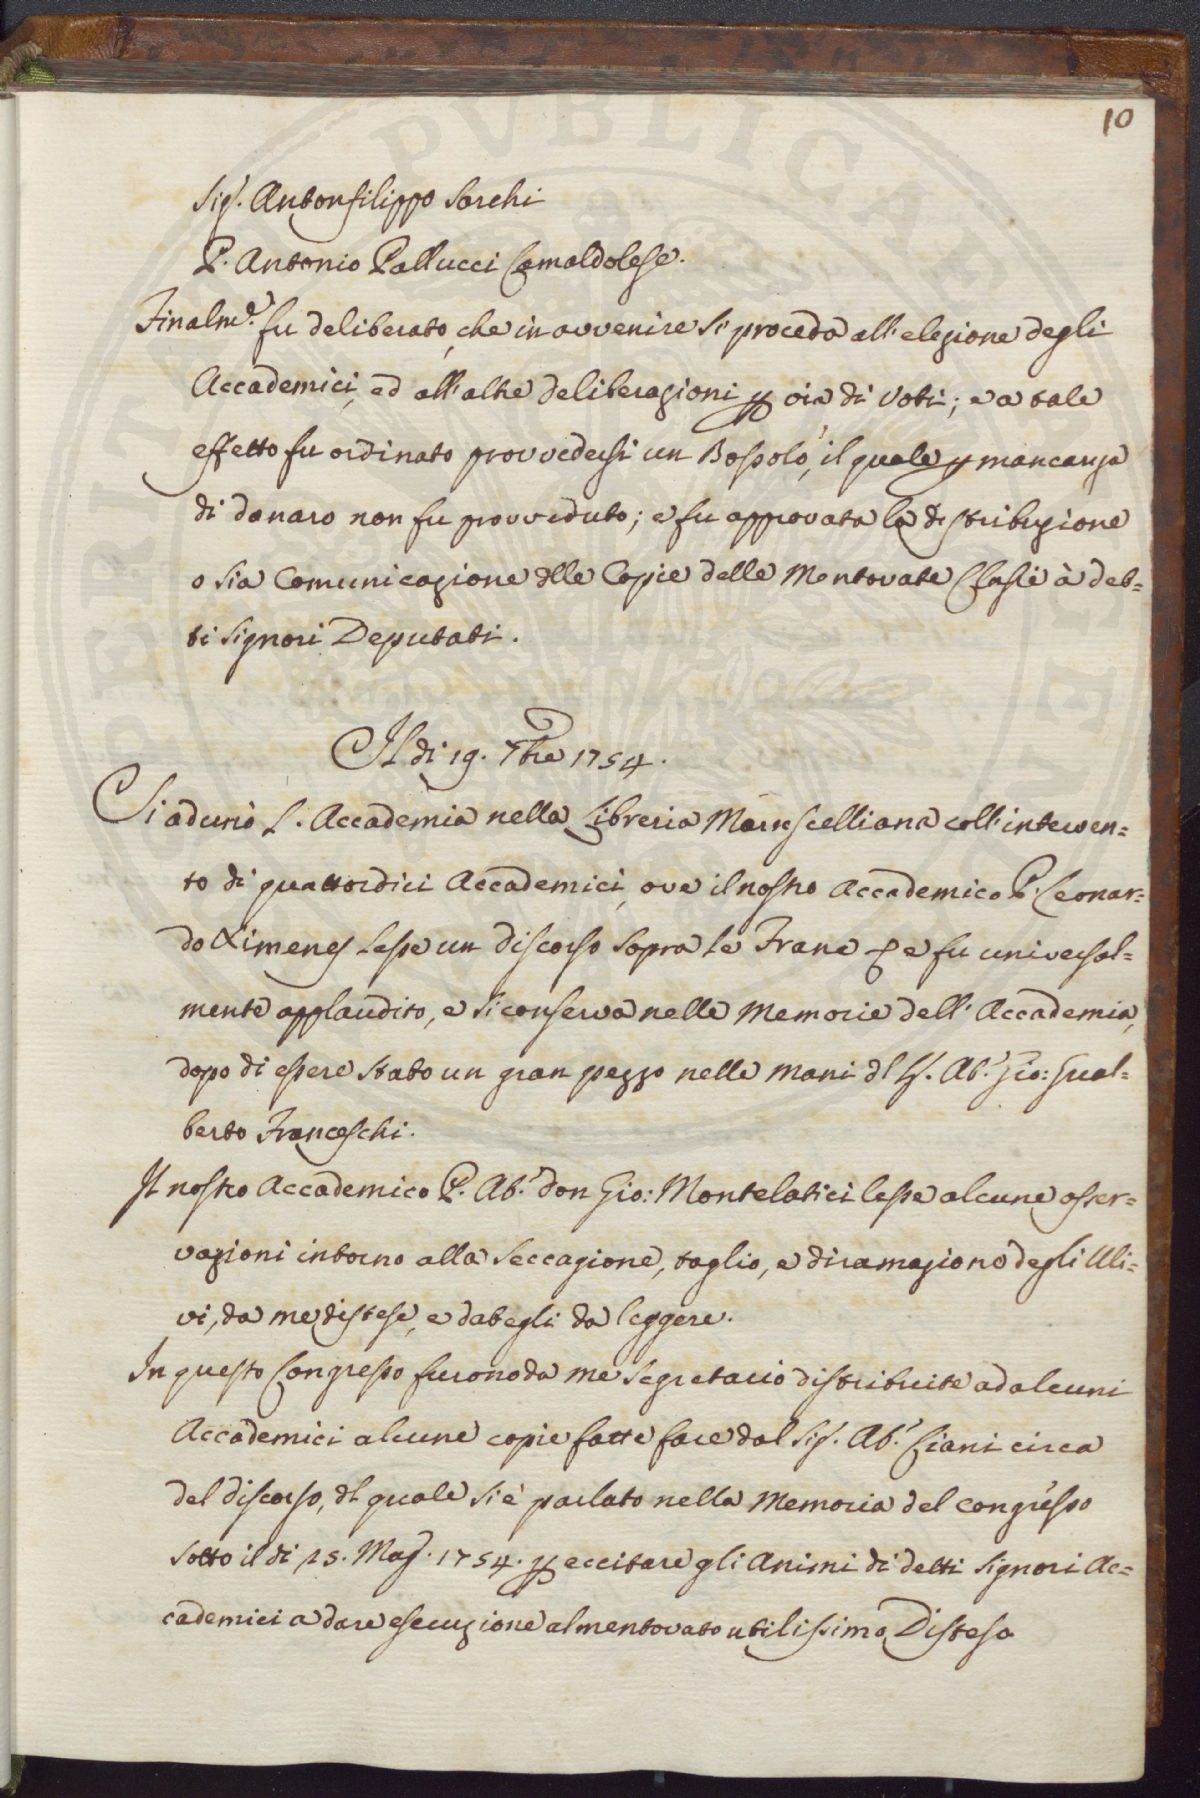 10
Sig.r Antonfilippo Sarchi
P. Antonio Pallucci Camaldolese.
Finalm.e fu deliberato, che in avvenire si proceda all'elezione degli
Accademici, ed all'altre deliberazioni p via di Voti; e a tale
effetto fu ordinato provvedersi un Bossolo, il quale p mancanza
di danaro non fu provveduto; e fu approvata la distribuzione
o sia Comunicazione dlle Copie delle Mentovate Classi à det=
ti Signori Deputati.
Il di 19. 7bre 1754.
Si adunò l'Accademia nella Libreria Marucelliana coll'interven=
to di quattordici Accademici, ove il nostro Accademico P. Leonar=
do Ximenes lesse un discorso sopra le Frane e fu universal=
mente applaudito, e si conserva nelle Memorie dell'Accademia,
dopo di essere stato un gran pezzo nelle mani dl Sig. Ab.e Gio: Gual=
berto Franceschi.
Il nostro Accademico P. Ab.e don Gio: Montelatici lesse alcune osser=
vazioni intorno alla Seccagione, taglio, e diramazione degli Uli=
vi, da me distese, e dategli da leggere.
In questo Congresso furono da me Segretario distribuite ad alcuni
Accademici alcune copie fatte fare dal Sig. Ab.e Ciani circa
del discorso, dl quale si è parlato nella Memoria del congresso
sotto il di 25. Mag. 1754. p eccitare gli Animi di detti Signori Ac=
cademici a dare esecuzione al mentovato utilissimo Disteso